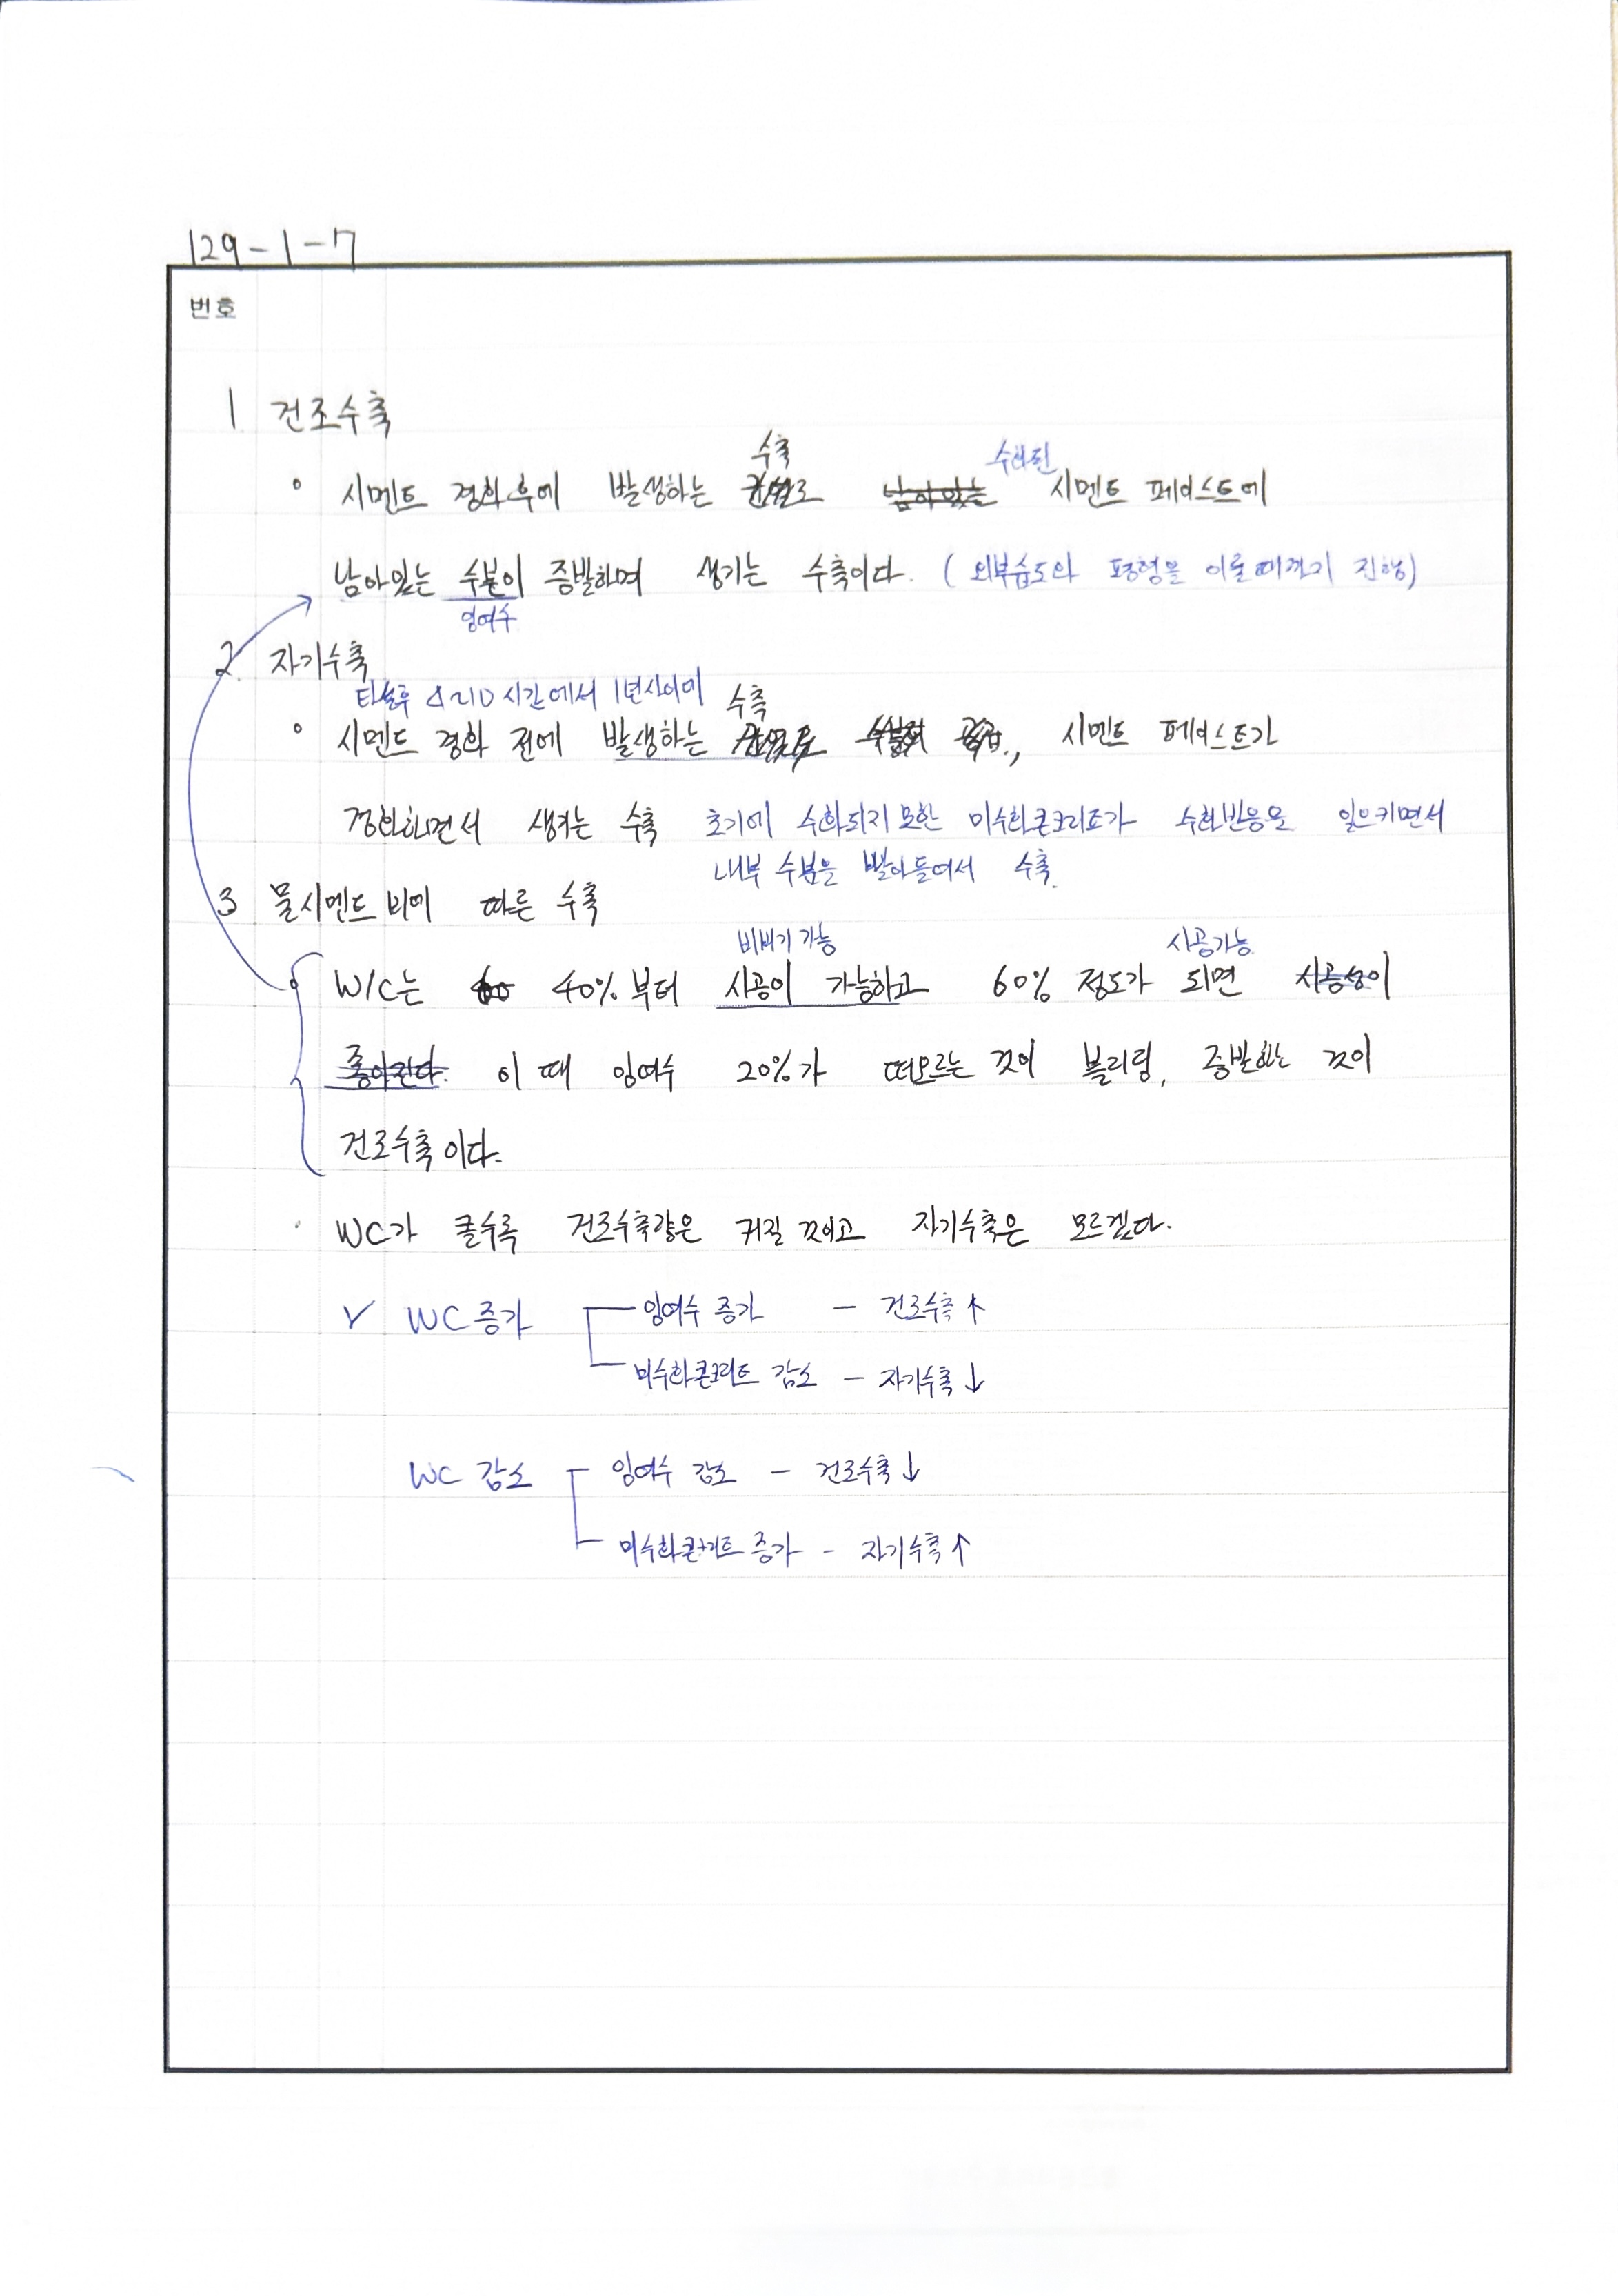 129-1-7
번호
1 건조수축
수축 수화된
시멘트 경화후에 발생하는 균열로 남아있는 시멘트 페이스트에
남아있는 수분이 증발하며 생기는 수축이다. (외부습도와 평형을 이룰때까지 진행)
잉여수
2. 자기수축
타설후 시간에서 1년사이에 수축
시멘트 경화 전에 발생하는 시멘트 페이스트가
경화하면서 생기는 수축 초기에 수화되지 못한 미수화콘크리트가 수화반응을 일으키면서
내부 수분을 빨아들여서 수축.
3 물시멘트비에 따른 수축
비비기 가능 시공가능
W/C는 40%부터 시공이 가능하고 60% 정도가 되면 시공성이
좋아진다. 이 때 잉여수 20%가 떠오르는 것이 블리딩, 증발하는 것이
건조수축이다.
WC가 클수록 건조수축량은 커질 것이고 자기수축은 모르겠다.
√ WC 증가 잉여수 증가 - 건조수축↑
미수화콘크리트 감소 - 자기수축↓
WC 감소 잉여수 감소 - 건조수축↓
미수화콘크리트 증가 - 자기수축↑